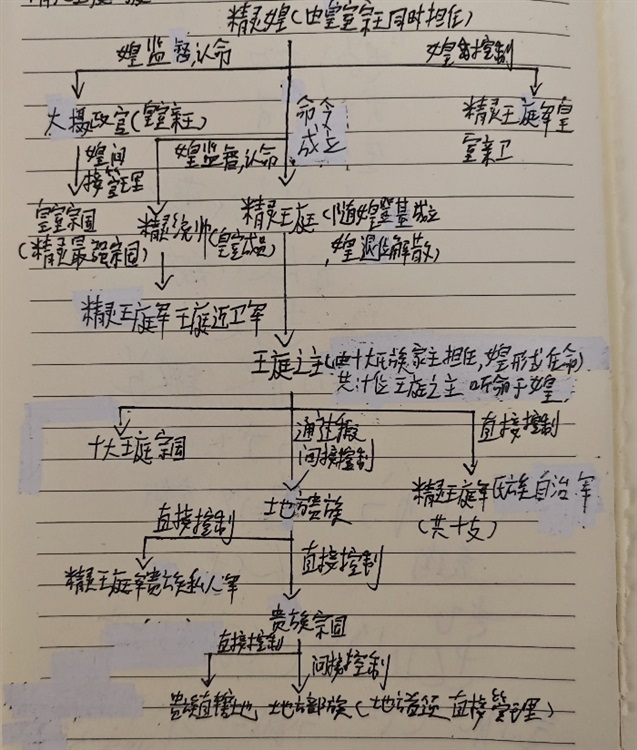 精灵媓(由皇室宗主同时担任)
媓监督,认命
媓直控制
大摄政官(皇室亲王)
命令
成立
精灵王庭军皇
室亲卫
媓间
接管理
媓监督,认命
皇室宗国
(精灵最强宗国)
精灵统帅(皇室成员)
精灵王庭(随媓登基成立
媓退位解散)
精灵王庭军王庭近卫军
王庭之主(由十大氏族家主担任,媓形式任命)
共十位王庭之主 听命于媓
十大王庭宗国
间接控制
直接控制
精灵王庭军氏族自治军
(共十支)
土地贵族
直接控制
直接控制
精灵王庭军贵族私人军
贵族宗国
直接控制
间接控制
贵族直辖地
土地部族(土地 直接管理)